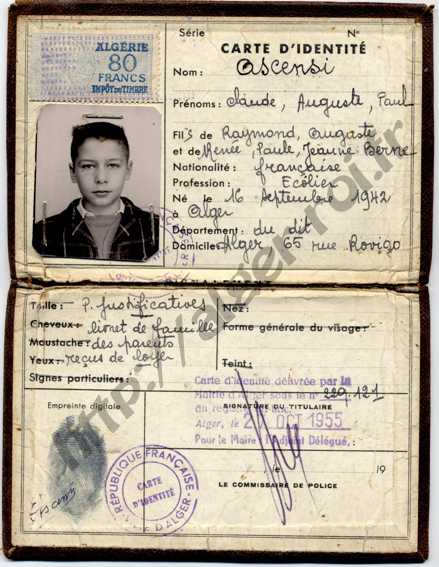 ALGÉRIE
80
FRANCS
IMPÔT DU TIMBRE
Série N°
CARTE D'IDENTITÉ
Nom: Ascensi
Prénoms: Claude, Auguste, Paul
Fils de Raymond, Augaste
et de Renée, Paule, Jeanne Berne
Nationalité: française
Profession: Ecôlier
Né le 16 Septembre 1942
à Alger
Département: du dit
Domicile: Alger 65 rue Rovigo
Taille: P. Justificatives Nez:
Cheveux: livret de famille Forme générale du visage:
Moustache: des parents
Yeux: reçus de loyer Teint:
Signes particuliers:
Carte d'identité délivrée par la
Mairie d'Alger sous le n° 229.121
Empreinte digitale
SIGNATURE DU TITULAIRE
du
Alger, OCT 1955
Pour le Maire: l'Adjoint Délégué.
le 19
LE COMMISSAIRE DE POLICE
RÉPUBLIQUE FRANÇAISE
CARTE
D'IDENTITÉ
D'ALGER
Ascensi
http://algerroi.fr